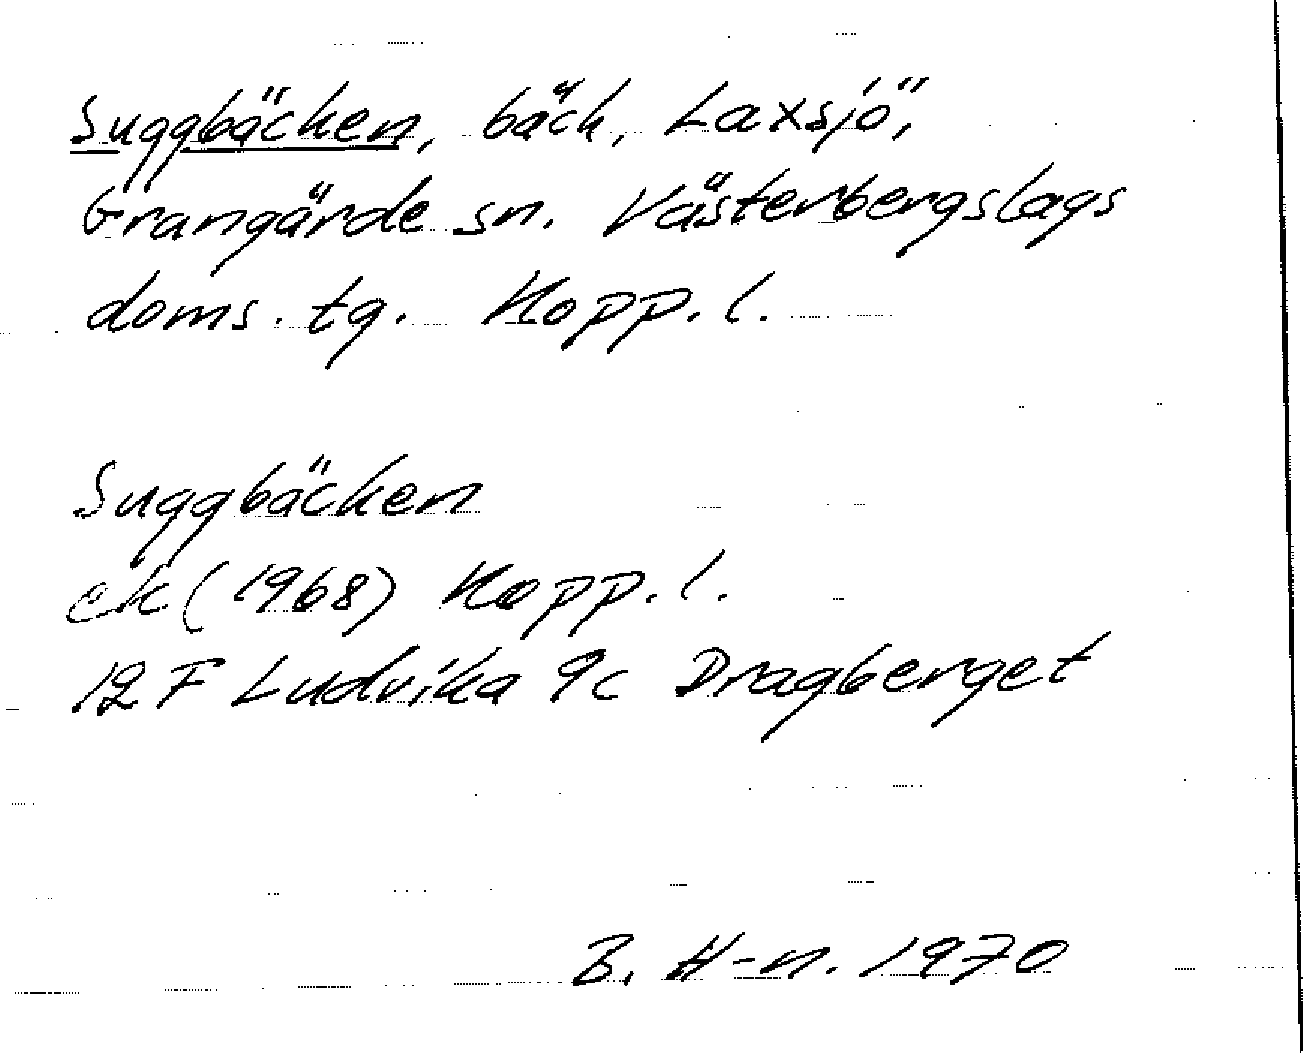 Suggbäcken, bäck, Laxsjö,
Grangärde sn. Västerbergslags
doms. tg. Kopp. l.
Suggbäcken
ek (1968) Kopp. l.
12 F Ludvika 9c Dragberget
B. H-n. 1970